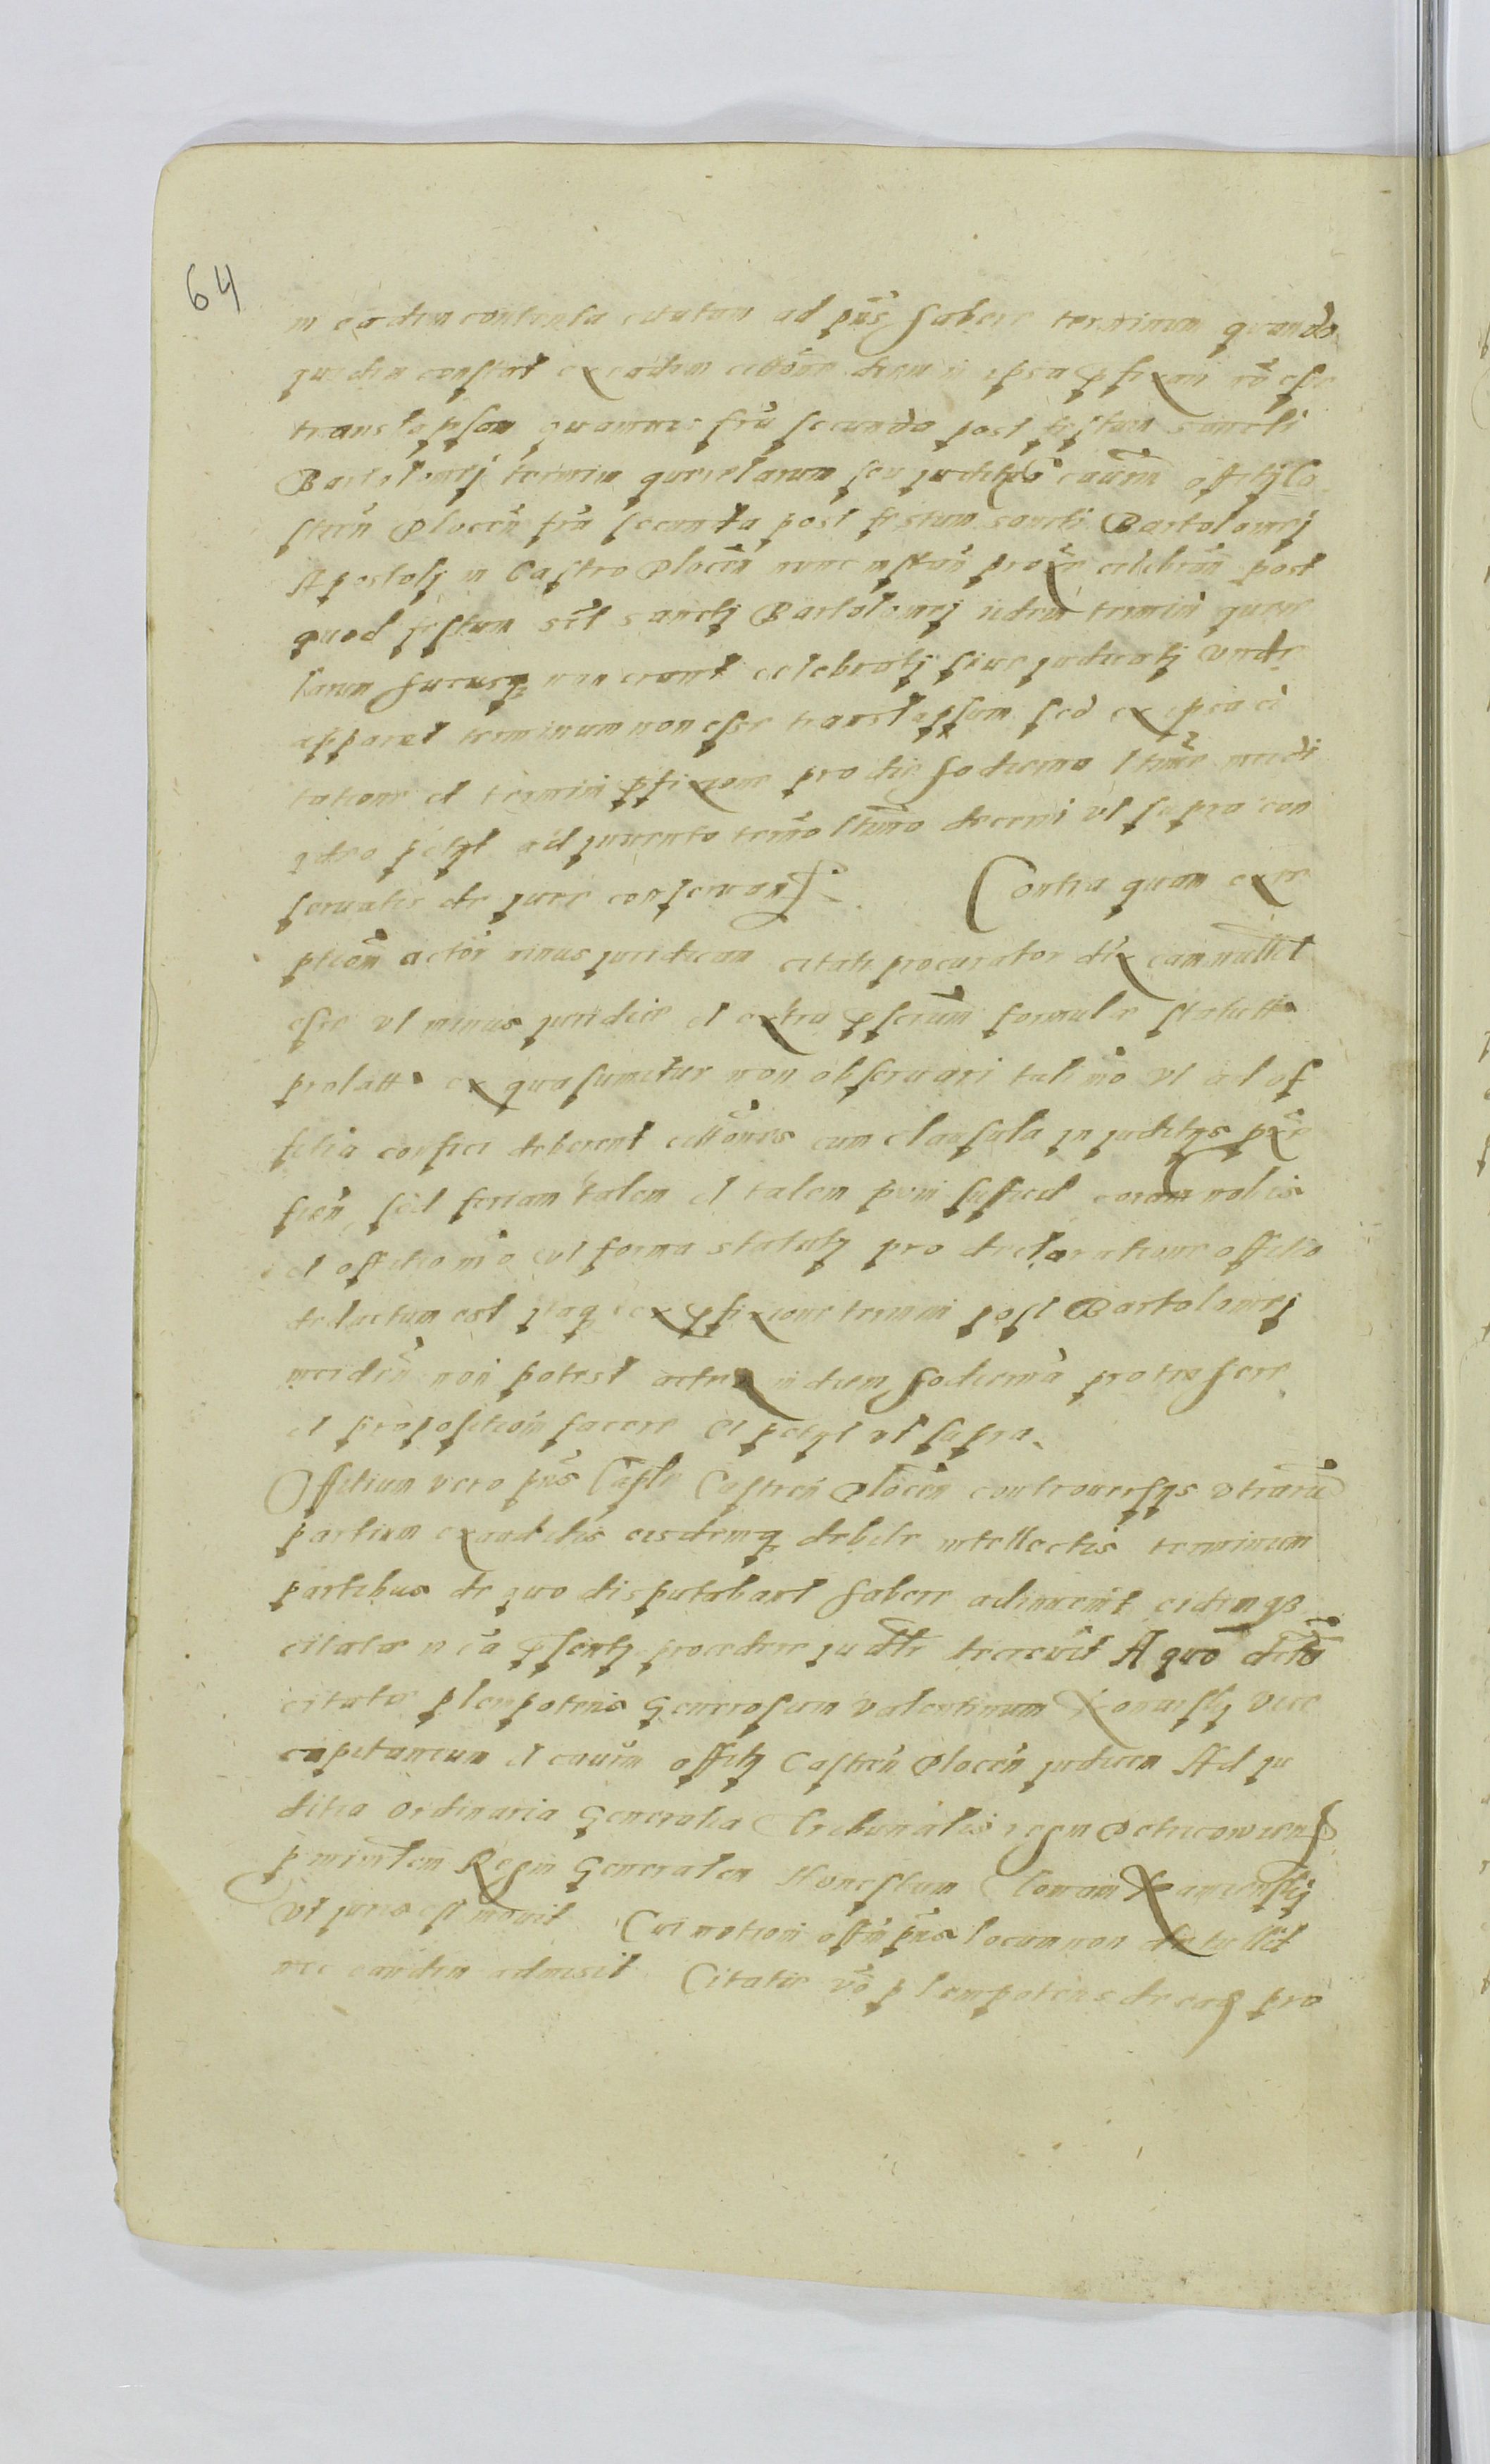 64
in eadem contenta citatum ad pñs habere terminum quando
quidem constat ex eadem cittõne diem in ipsa pfixam nõ esse
translapsam quamvis fria secunda post festum sancti
Bartolomej termini querelarum seu juditior causm offitij Ca
stren Plocen fria secunda post festum sancti Bartolomej
Apostolj in Castro Plocen nunc instan proxe celebran post
quod festum scil sanctj Bartolomej iidem termini quere
larum hucusq non erant celebratj sive judicatj unde
apparet terminum non esse translapsum sed ex ipsa ci
tatione et termini pfixione pro die hodierna ltime
ideo petijt ad invento termo ltimo decerni ut supra con
servatis de jure conservan Contra quam exce
ption actor minus juridicam citati procurator dix eam
esse ut minus juridice et extra pscriam formulae
prolatt ex qua sumitur non observari tali mo ut ad of
fitia confici deberent cittones cum clausula in juditijs pxe
sed feriam talem et talem poni sufficit coram nobis
et offitio mo ut forma statutj pro declaratione offitio
deductum est itaq ex pfixione termini post Bartolomej
inciden non potest actor in diem hodierna protrahere
et propositiom facere Et petijt ut supra.
Offitium vero pñs Castren Plocen controversijs utrarũ
partium exauditis eisdemq debite intellectis terminum
partibus de quo disputabant habere adinvenit eidemqz
citatae in ca psentj procedere judtr decrevit A quo decto
citatae plenipotens Generosum Valentinum vice
capitaneum et causm offitij Castren Plocen judicem Ad ju
ditia Ordinaria Generalia Tribunalis regni Petricovien
p minrlem Regni Generalem Honestum
ut juris est movit Cui motioni offm pñs locum non detullit
nec eandem admisit Citatae vo plenipotens de ea pro